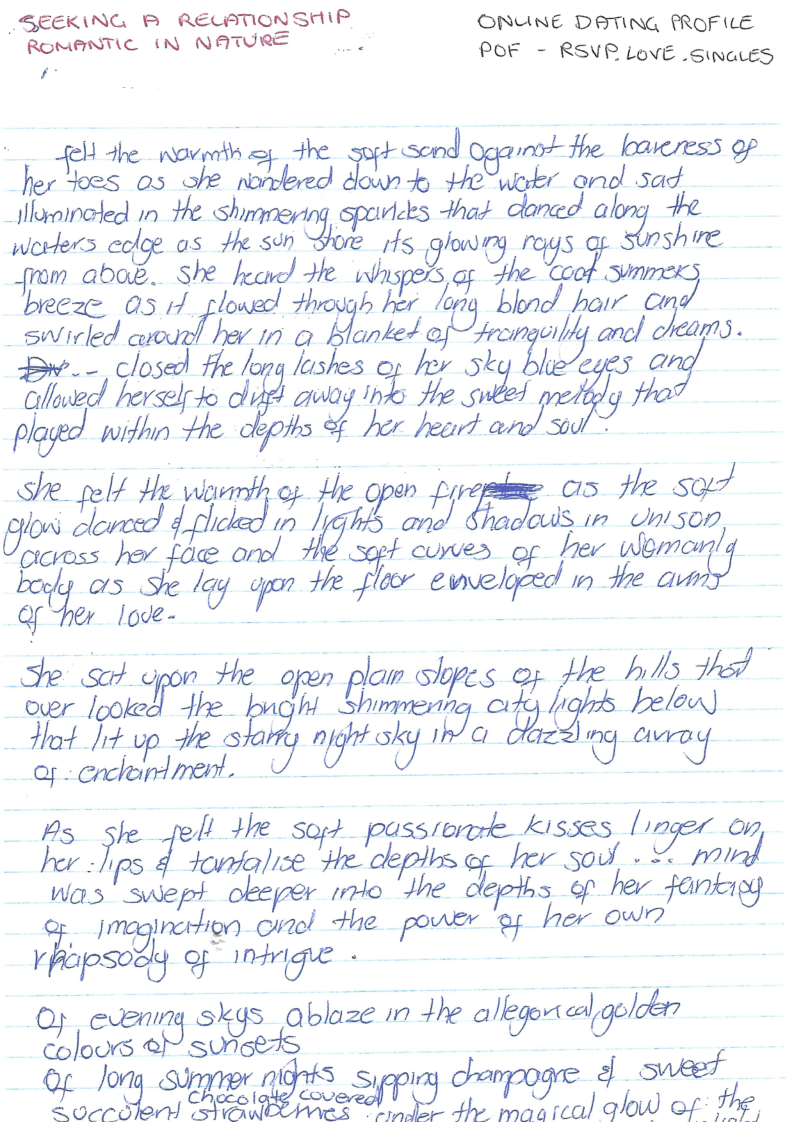 SEEKING A RELATIONSHIP
ROMANTIC IN NATURE
ONLINE DATING PROFILE
POF - RSVP. LOVE. SINGLES
felt the warmth of the soft sand against the bareness of
her toes as she wandered down to the water and sat
illuminated in the shimmering sparkles that danced along the
waters edge as the sun shore its glowing rays of sunshine
from above. She heard the whispers of the cool summers
breeze as it flowed through her long blond hair and
swirled around her in a blanket of tranquility and dreams.
closed the long lashes of her sky blue eyes and
allowed herself to drift away into the sweet melody that
played within the depths of her heart and soul.
She felt the warmth of the open fire as the soft
glow danced & flicked in lights and shadows in unison
across her face and the soft curves of her womanly
body as she lay upon the floor enveloped in the arms
of her love.
She sat upon the open plain slopes of the hills that
over looked the bright shimmering city lights below
that lit up the starry night sky in a dazzling array
of enchantment.
As she felt the soft passionate kisses linger on
her lips & tantalise the depths of her soul ... mind
was swept deeper into the depths of her fantasy
of imagination and the power of her own
rhapsody of intrigue.
Of evening skys ablaze in the allegorical golden
colours of sunsets
Of long summer nights sipping champagne & sweet
chocolate covered
succulent strawberries under the magical glow of the